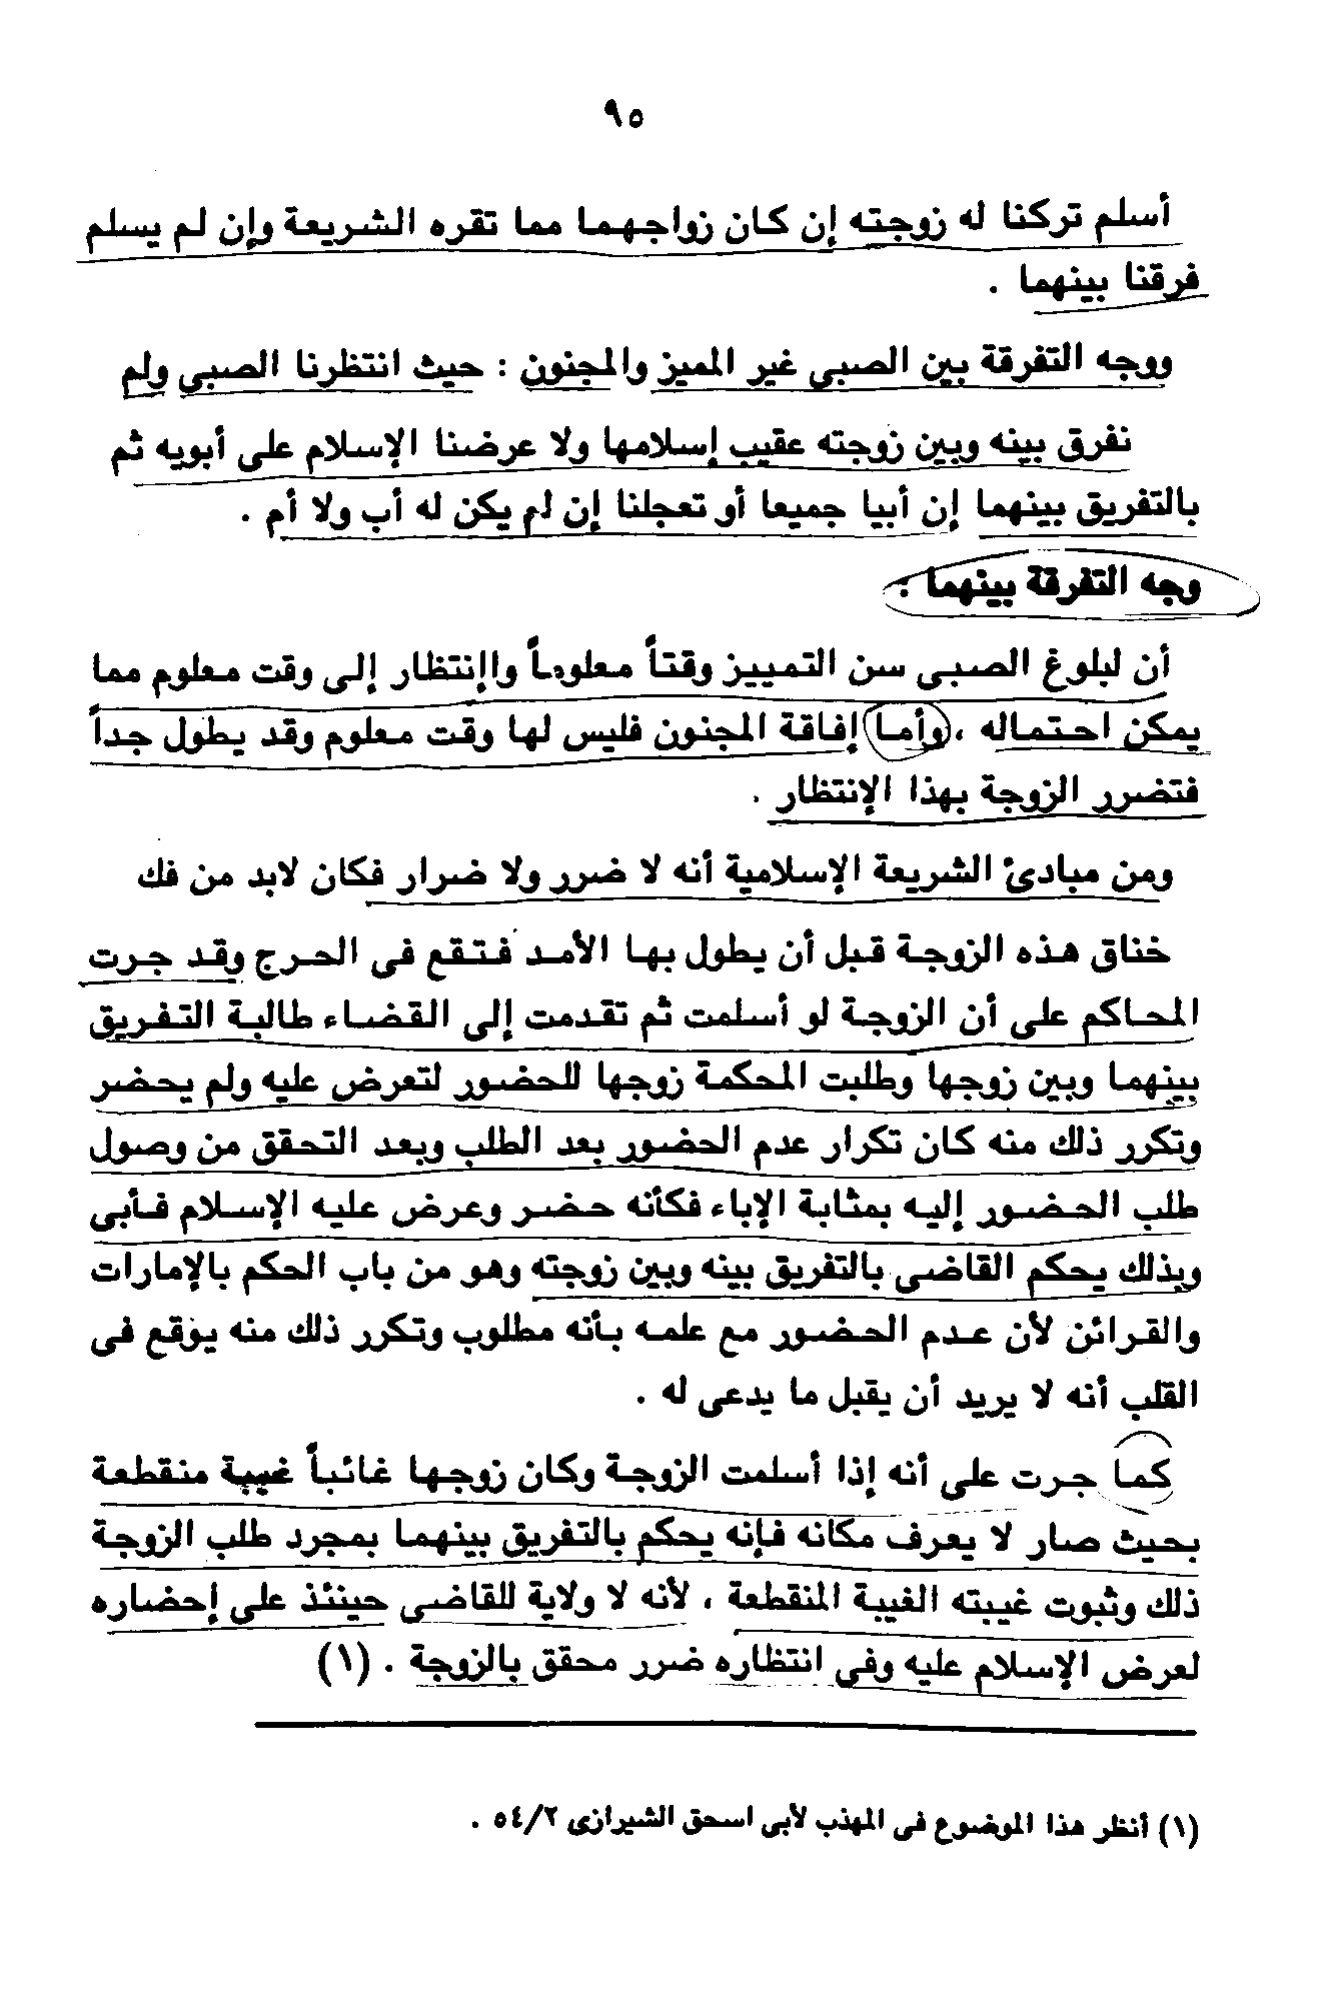 ٩٥
أسلم تركنا له زوجته إن كان زواجهما مما تقره الشريعة وإن لم يسلم
فرقنا بينهما .
ووجه التفرقة بين الصبي غير المميز والمجنون : حيث انتظرنا الصبي ولم
نفرق بينه وبين زوجته عقيب إسلامها ولا عرضنا الإسلام على أبويه ثم
بالتفريق بينهما إن أبيا جميعا أو تعجلنا إن لم يكن له أب ولا أم .
وجه التفرقة بينهما :
أن لبلوغ الصبى سن التمييز وقتاً معلوماً واإنتظار إلى وقت معلوم مما
يمكن احتماله ، وأما إفاقة المجنون فليس لها وقت معلوم وقد يطول جداً
فتضرر الزوجة بهذا الإنتظار .
ومن مبادئ الشريعة الإسلامية أنه لا ضرر ولا ضرار فكان لابد من فك
خناق هذه الزوجة قبل أن يطول بها الأمد فتقع فى الحرج وقد جرت
المحاكم على أن الزوجة لو أسلمت ثم تقدمت إلى القضاء طالبة التفريق
بينهما وبين زوجها وطلبت المحكمة زوجها للحضور لتعرض عليه ولم يحضر
وتكرر ذلك منه كان تكرار عدم الحضور بعد الطلب وبعد التحقق من وصول
طلب الحضور إليه بمثابة الإباء فكأنه حضر وعرض عليه الإسلام فأبى
وبذلك يحكم القاضى بالتفريق بينه وبين زوجته وهو من باب الحكم بالإمارات
والقرائن لأن عدم الحضور مع علمه بأنه مطلوب وتكرر ذلك منه يوقع فى
القلب أنه لا يريد أن يقبل ما يدعى له .
كما جرت على أنه إذا أسلمت الزوجة وكان زوجها غائباً غيبة منقطعة
بحيث صار لا يعرف مكانه فإنه يحكم بالتفريق بينهما بمجرد طلب الزوجة
ذلك وثبوت غيبته الغيبة المنقطعة ، لأنه لا ولاية للقاضى حينئذ على إحضاره
لعرض الإسلام عليه وفى انتظاره ضرر محقق بالزوجة . (١)
(١) أنظر هذا الموضوع فى المهذب لأبى اسحق الشيرازى ٥٤/٢ .